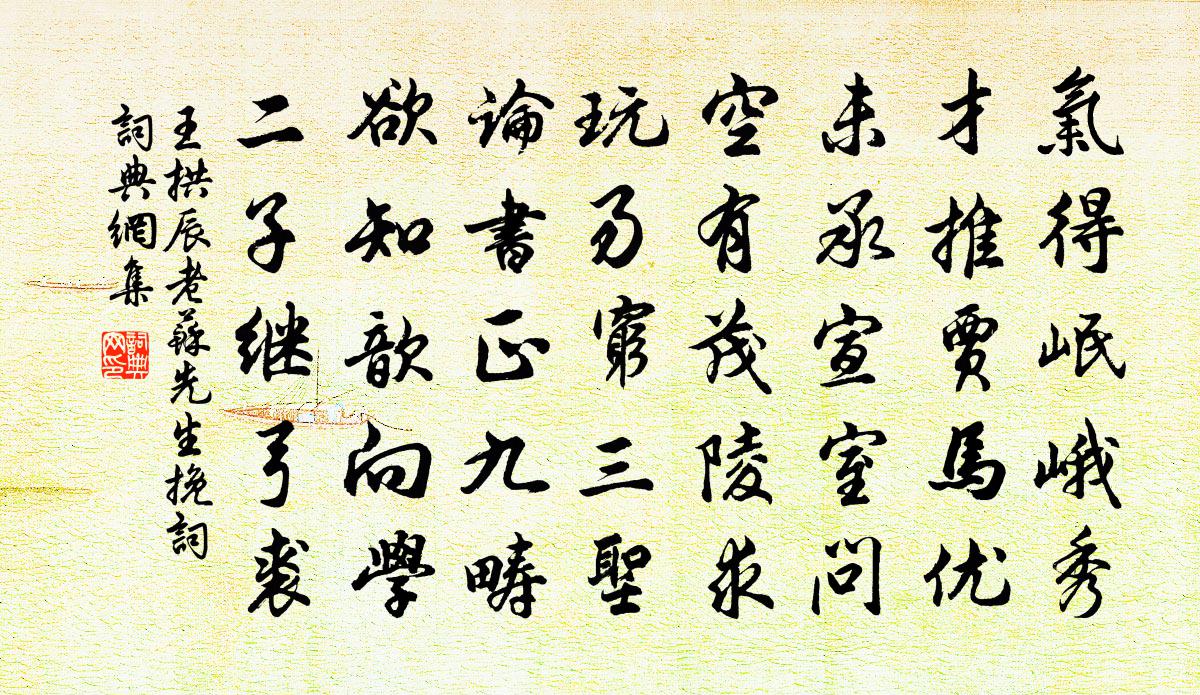 氣得岷峨秀
才推賈馬优
未承宣室問
空有茂陵求
玩易窮三聖
論書正九疇
欲知歆向學
二子继弓裘
王拱辰老蘇先生挽詞
詞典網集
詞典
网印